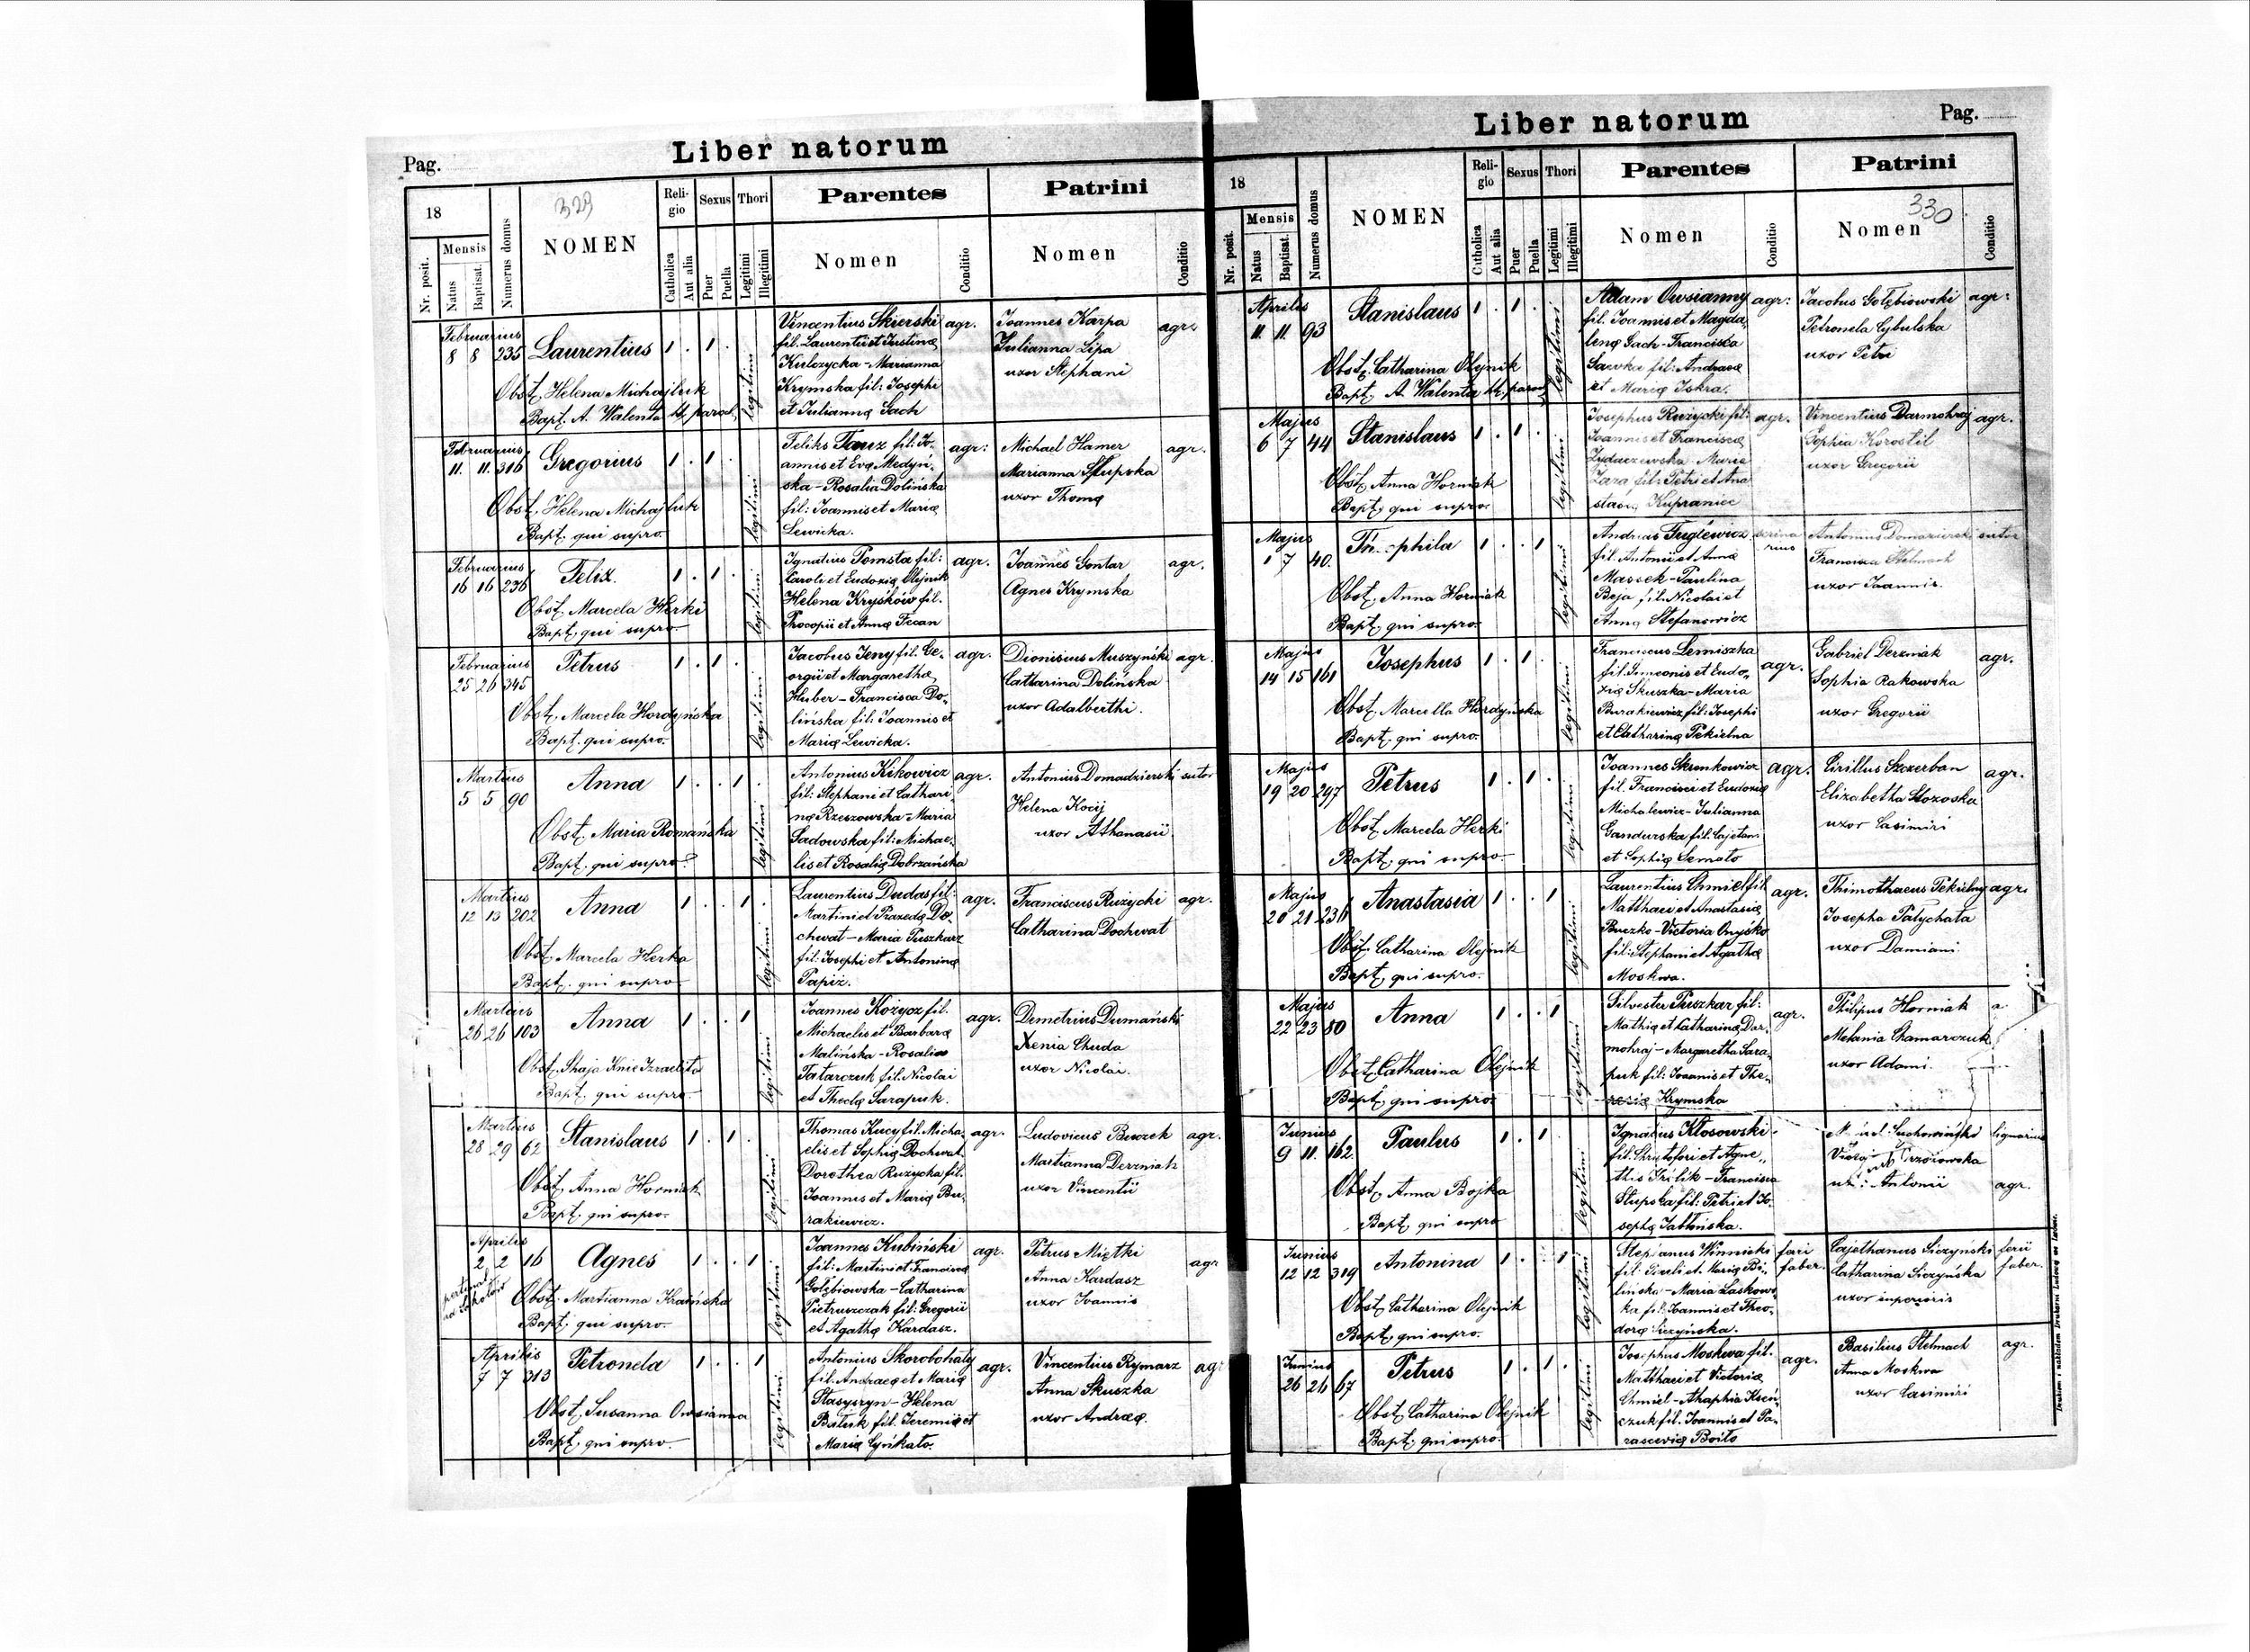 Pag.
Liber natorum
18
Mensis
Nr. posit.
Natus
Baptisat.
Numerus domus
329
NOMEN
Reli-
gio
Catholica
Aut alia
Sexus
Puer
Puella
Thori
Legitimi
Illegitimi
Parentes
Nomen
Conditio
Patrini
Nomen
Conditio
Februarius
8 8 235 Laurentius 1 . 1 .
Obst. Helena Michajluk
Bapt. A. Walenta
legitimi
Vincentius Skierski
fil. Laurentii et Justinę
Kulczycka - Marianna
Krymska fil: Josephi
et Juliannę Gach
agr.
Joannes Karpa
Julianna Lipa
uxor Stephani
agr.
Februarius
11. 11. 316 Gregorius 1 . 1 .
Obst. Helena Michajluk
Bapt. qui supro.
legitimi
Feliks Tauz fil: Jo-
annis et Evę Medyń-
ska - Rosalia Dolińska
fil: Joannis et Marię
Lewicka.
agr:
Michael Hamer
Marianna Słupska
uxor Thomę
agr.
Februarius
16 16 236 Felix. 1 . 1 .
Obst. Marcela Herki
Bapt. qui supro.
legitimi
Ignatius Pomsta fil:
Caroli et Eudoxię Olejnik
Helena Kryśków fil.
Procopii et Annę Fecan
agr.
Joannes Gontar
Agnes Krymska
agr.
Februarius
25 26 345 Petrus 1 . 1 .
Obst. Marcela Hordyńska
Bapt. qui supro.
legitimi
Jacobus Jeny fil. Ge-
orgii et Margarethę
Huber - Francisca Do-
lińska fil: Joannis et
Marię Lewicka.
agr.
Dionisius Muszyński
Catharina Dolińska
uxor Adalberthi.
agr.
Martius
5 5 90 Anna 1 . . 1 .
Obst. Maria Romańska
Bapt. qui supro.
legitimi
Antonius Kikowicz
fil: Stephani et Cathari-
nę Rzeszowska - Maria
Sadowska fil: Michae-
lis et Rosalię Dobrzańska
agr.
Antonius Domadzierski
Helena Kocij
uxor Athanasii
sutor
Martius
12 13 202 Anna 1 . . 1 .
Obst. Marcela Herka
Bapt. qui supro.
legitimi
Laurentius Dudas fil:
Martini et Praxedę Do-
chwat - Maria Puszkarz
fil: Josephi et Antoninę
Papiż.
agr.
Franciscus Rużycki
Catharina Dochwat
agr.
Martius
26 26 103 Anna 1 . . 1
Obst. Shaja Knie Izraelita
Bapt. qui supro.
legitimi
Joannes Kożycz fil.
Michaelis et Barbarę
Malińska - Rosalia
Tatarczuk fil. Nicolai
et Theclę Sarapuk.
agr.
Demetrius Dumański
Xenia Chuda
uxor Nicolai.
Martius
28 29 62 Stanislaus 1 . 1 .
Obst. Anna Horniak
Bapt. qui supro.
legitimi
Thomas Kucy fil. Micha-
elis et Sophię Dochwat
Dorothea Rużycka fil.
Joannis et Marię Bu-
rakiewicz.
agr.
Ludovicus Buczek
Marianna Derzniak
uxor Vincentii
agr.
Aprilis
2 2 16 Agnes 1 . . 1
Obst. Martianna Kraińska
Bapt. qui supro.
legitimi
Joannes Kubiński
fil: Martini et Franciscę
Gołębiowska - Catharina
Pietruszczak fil: Gregorii
et Agathę Kardasz.
agr.
Petrus Miętki
Anna Kardasz
uxor Joannis
agr.
Aprilis
7 7 313 Petronela 1 . . 1
Obst. Susanna Owsianna
Bapt. qui supro.
legitimi
Antonius Skorobohaty
fil. Andraeę et Marię
Stasyszyn - Helena
Batuk fil. Jeremiię et
Marię Cyńkato.
agr.
Vincentius Rymarz
Anna Skuszka
uxor Andraę.
agr.
Liber natorum
Pag.
18
Mensis
Nr. posit.
Natus
Baptisat.
Numerus domus
NOMEN
Reli-
gio
Catholica
Aut alia
Sexus
Puer
Puella
Thori
Legitimi
Illegitimi
Parentes
Nomen
Conditio
Patrini
330
Nomen
Conditio
Aprilis
11. 11. 93 Stanislaus 1 . 1 .
Obst. Catharina Olejnik
Bapt. A. Walenta
legitimi
Adam Owsianny
fil. Joannis et Magda-
lenę Gach - Francisca
Sawka fil: Andraeę
et Marię Iskra.
agr:
Jacobus Gołębiowski
Petronela Cybulska
uxor Petri
agr:
Majus
6 7 44 Stanislaus 1 . 1 .
Obst. Anna Horniak
Bapt. qui supro.
legitimi
Josephus Rużycki fil:
Joannis et Franciscę
Maria
Zara fil: Petri et Ana
Kupraniec
agr.
Vincentius Darmohraj
Sophia Korostil
uxor Gregorii
agr.
Majus
1 7 40.
Obst. Anna Horniak
Bapt. qui supro.
legitimi
Andreas Fuglewicz
fil. Antonii et Annę
Massek - Paulina
Beja fil. Nicolai et
Annę Stefanowicz
Antonius Domazierski
Francisca Stelmach
uxor Joannis.
sutor
Majus
14 15 161 Josephus 1 . 1 .
Obst. Marcella Hordyńska
Bapt. qui supro.
legitimi
Franciscus Lemiszka
fil. Simeonis et Eudo-
xię Skuszka - Maria
Burakiewicz fil: Josephi
et Catharinę Pekielna
agr.
Gabriel Derzniak
Sophia Rakowska
uxor Gregorii
agr.
Majus
19 20 297 Petrus 1 . 1 .
Obst. Marcela Herki
Bapt. qui supro.
legitimi
Joannes Skrunkowicz
fil. Francisci et Eudoxię
Michalewicz - Julianna
Gandurska fil. Cajetani
et Sophię Semato
agr.
Cirillus Szczerban
Elizabetha Stozoska
uxor Casimiri
agr.
Majus
20 21 236 Anastasia 1 . . 1
Obst. Catharina Olejnik
Bapt. qui supro.
legitimi
Laurentius Chmiel fil
Matthaei et Anastasię
Buczko - Victoria Onyśko
fil: Stephani et Agathę
Moskwa.
agr.
Thimothaeus Pekielny
Josepha Patychata
uxor Damiani
agr.
Majus
22 23 80 Anna 1 . . 1
Obst. Catharina Olejnik
Bapt. qui supro.
legitimi
Silvester Puszkar fil:
Mathię et Catharinę Dar-
mohraj - Margaretha Sara-
puk fil: Joannis et The-
resię Krymska
agr.
Philipus Horniak
Melania Shamarczuk
uxor Adami.
a
Junius
9 11. 162. Paulus 1 . 1
Obst. Anna Bojka
Bapt. qui supro
legitimi
Ignatius Kłosowski
fil. Christofori et Agne-
tis Królik - Francisca
Słupska fil: Petri et Jo-
sephę Jabłońska.
Antonii
lignarius
agr.
Junius
12 12 319 Antonina 1 . . 1
Obst. Catharina Olejnik
Bapt. qui supro.
legitimi
Stephanus Winnicki
fil: Pauli et Marię Bi-
lińska - Maria Laskows-
ka fil. Joannis et Theo-
dorę Siczyńska.
feri
faber.
Cajethanus Siczyński
Catharina Siczyńska
uxor superioris
ferii
faber.
Junius
26 26 67 Petrus 1 . 1 .
Obst. Catharina Olejnik
Bapt. qui supro.
legitimi
Josephus Moskwa fil.
Matthaei et Victorię
Chmiel - Ahaphia Kseń-
czuk fil. Joannis et Pa-
rascevię Boito
agr.
Basilius Stelmach
Anna Moskwa
uxor Casimiri
agr.